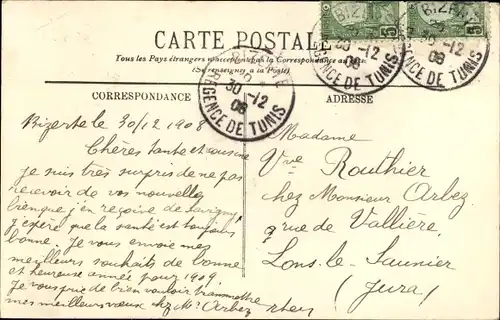 CARTE POSTALE
Tous les Pays étrangers n'acceptent pas la Correspondance au
(Se renseigner à la Poste)
CORRESPONDANCE
ADRESSE
BIZERTE
30 -12
08
REGENCE DE TUNIS
BIZERTE
30 -12
08
REGENCE DE TUNIS
BIZERTE
30 -12
08
REGENCE DE TUNIS
5
5
Bizerte le 30/12 1908
Chères tante et cousine
je suis très surpris de ne pas
recevoir de vos nouvelles
bien que j'en reçoive de
j'espère que la santé est toujours
bonne. Je vous envoie mes
meilleurs souhaits de bonne
et heureuse année pour 1909
Je vous prie de bien vouloir transmettre
mes meilleurs vœux chez Mr Arbez
Madame
Vve Routhier
chez Monsieur Arbez
rue de Vallière
Lons-le-Saunier
(Jura)